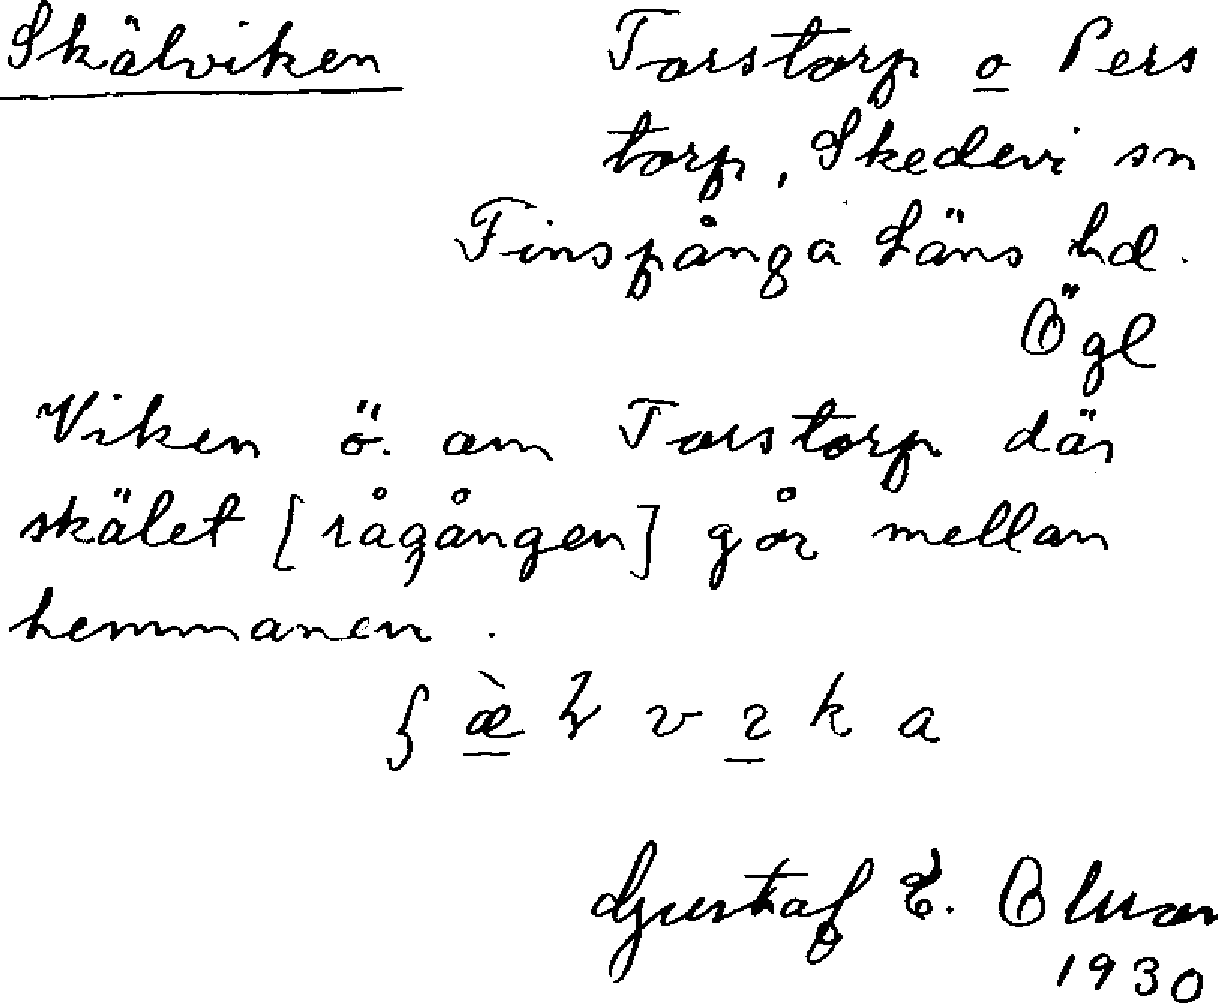 Skälviken
Torstorp o Pers
torp, Skedevi sn
Finspånga Läns hd.
Ögl
Viken ö. om Torstorp där
skälet [rågången] går mellan
hemmanen.
1930